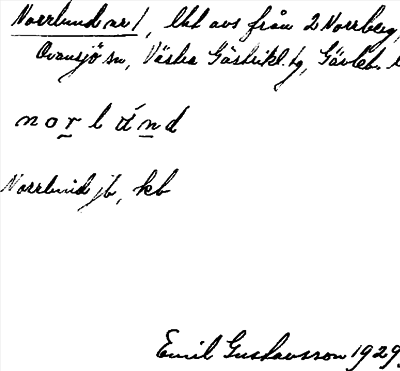 Norrlund nr 1, lht avs från 2 Norrberg,
Ovansjö sn, Västra Gästrikl. tg, Gävleb. l
norlánd
Norrlund jb, kb
Emil Gustavsson 1929.